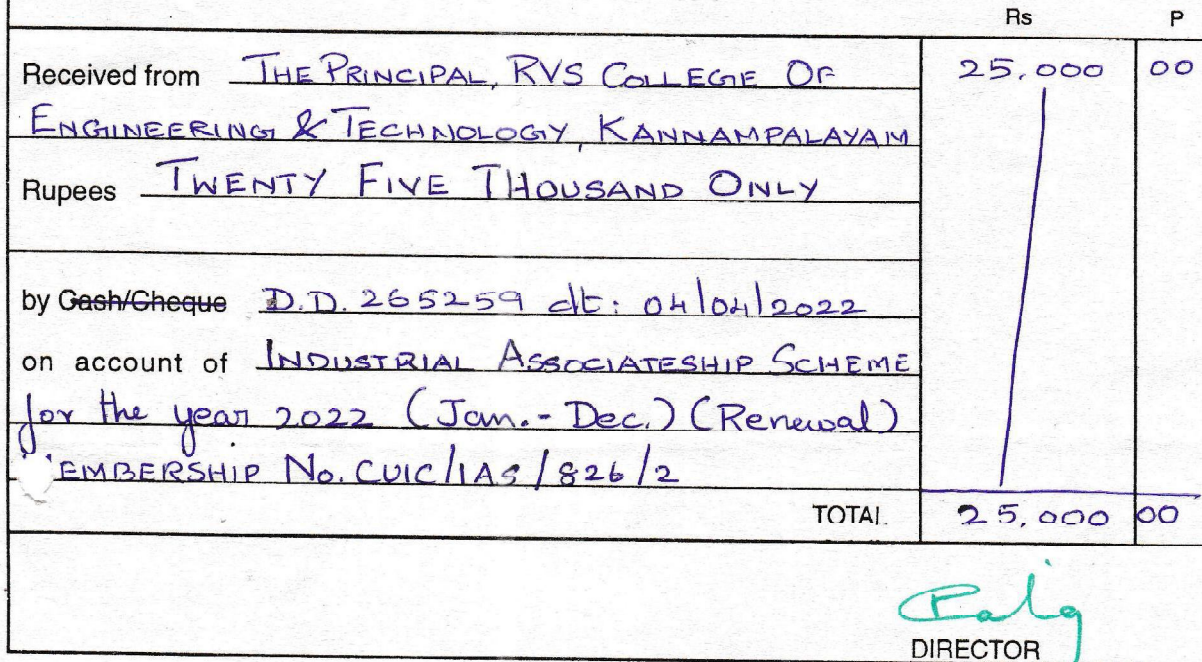 Rs P
Received from THE PRINCIPAL, RVS COLLEGE OF 25,000 00
ENGINEERING & TECHNOLOGY, KANNAMPALAYAM
Rupees TWENTY FIVE THOUSAND ONLY
by Cash/Cheque D.D. 265259 dt: 04/04/2022
on account of INDUSTRIAL ASSOCIATESHIP SCHEME
for the year 2022 (Jan.- Dec.) (Renewal)
EMBERSHIP No. CUIC/IAS/826/2
TOTAL 25,000 00
DIRECTOR